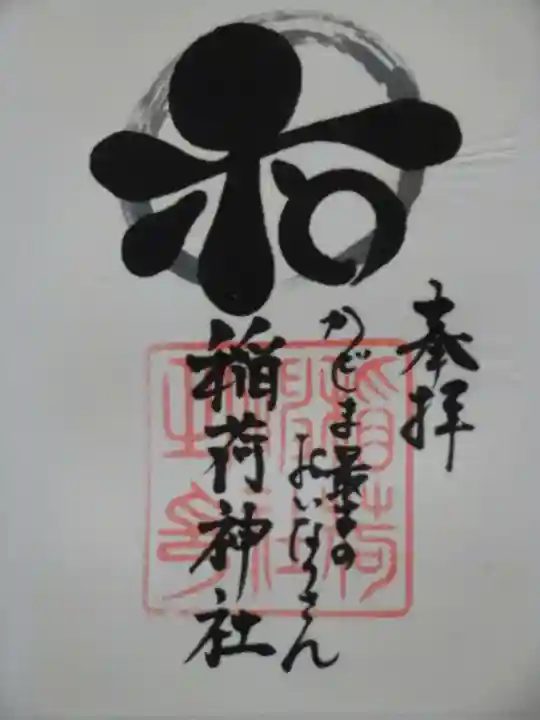 奉拝
最古の
おいなりさん
稲荷神社
稲荷
神社
之印